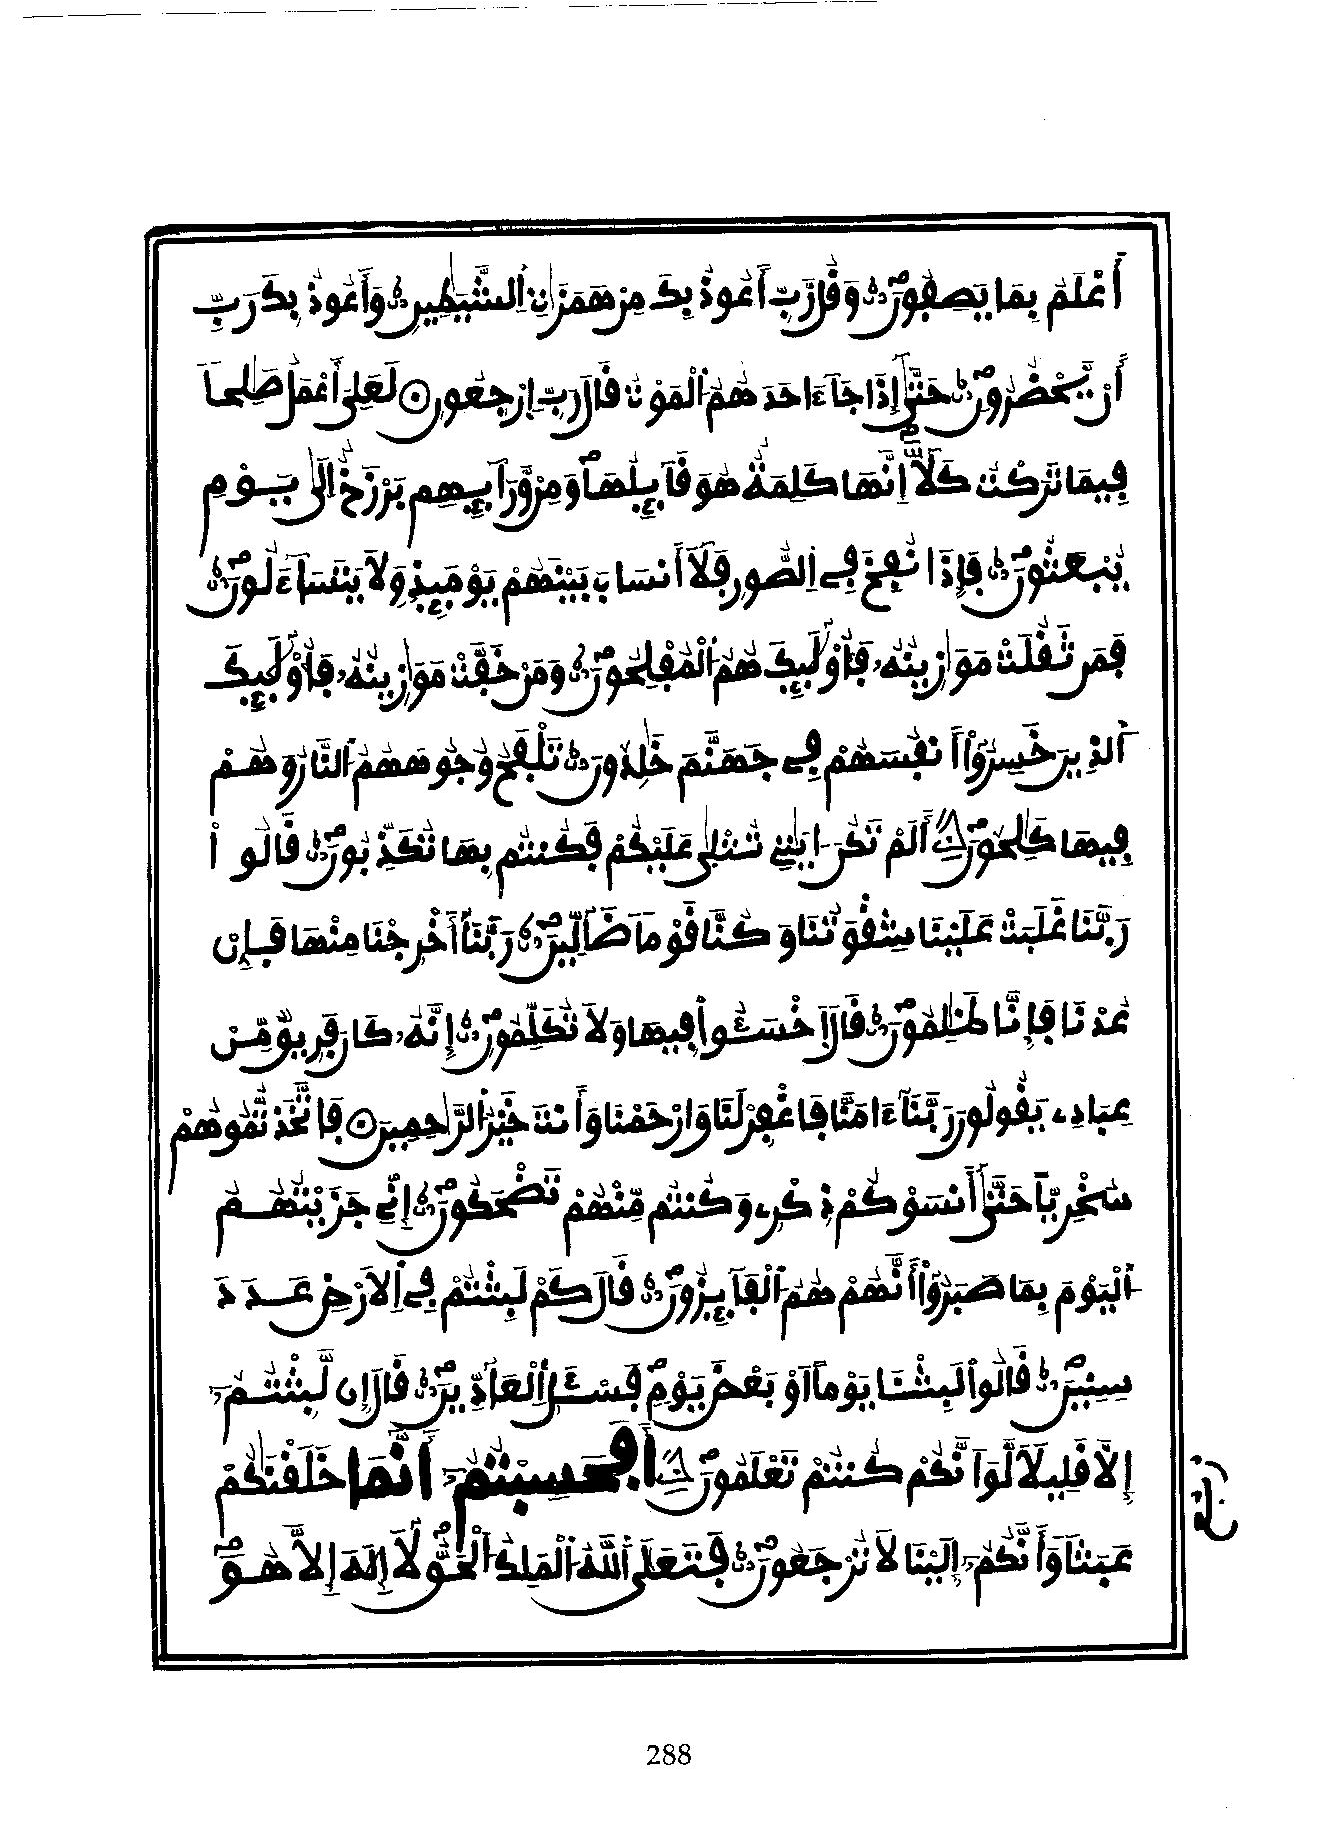 أَعْلَمُ بِمَا يَصِفُونَ وَقُل رَّبِّ أَعُوذُ بِكَ مِنْ هَمَزَاتِ اِ۬لشَّيَٰطِينِ وَأَعُوذُ بِكَ رَبِّ
أَنْ يَّحْضُرُونِ حَتَّىٰ إِذَا جَآءَ احَدَهُمُ اُ۬لْمَوْتُ قَالَ رَبِّ اِ۪رْجِعُونِ لَعَلِّيَ أَعْمَلُ صَٰلِحاٗ
فِيمَا تَرَكْتُ كَلَّآ إِنَّهَا كَلِمَةٌ هُوَ قَآئِلُهَا وَمِنْ وَّرَآئِهِم بَرْزَخٌ اِلَىٰ يَوْمِ
يُبْعَثُونَ فَإِذَا نُفِخَ فِے اِ۬لصُّورِ فَلَآ أَنسَابَ بَيْنَهُمْ يَوْمَئِذٖ وَلَا يَتَسَآءَلُونَ
فَمَن ثَقُلَتْ مَوَٰزِينُهُۥ فَأُوْلَٰٓئِكَ هُمُ اُ۬لْمُفْلِحُونَ وَمَنْ خَفَّتْ مَوَٰزِينُهُۥ فَأُوْلَٰٓئِكَ
اَ۬لذِينَ خَسِرُوٓاْ أَنفُسَهُمْ فِے جَهَنَّمَ خَٰلِدُونَ تَلْفَحُ وُجُوهَهُمُ اُ۬لنَّارُ وَهُمْ
فِيهَا كَٰلِحُونَ أَلَمْ تَكُنَ اٰيَٰتِے تُتْلَىٰ عَلَيْكُمْ فَكُنتُم بِهَا تُكَذِّبُونَ قَالُواْ
رَبَّنَا غَلَبَتْ عَلَيْنَا شِقْوَتُنَا وَكُنَّا قَوْماٗ ضَآلِّينَ رَبَّنَآ أَخْرِجْنَا مِنْهَا فَإِنْ
عُدْنَا فَإِنَّا ظَٰلِمُونَ قَالَ اَ۪خْسَـُٔواْ فِيهَا وَلَا تُكَلِّمُونِ إِنَّهُۥ كَانَ فَرِيقٌ مِّنْ
عِبَادِے يَقُولُونَ رَبَّنَآ ءَامَنَّا فَاغْفِرْ لَنَا وَارْحَمْنَا وَأَنتَ خَيْرُ اُ۬لرَّٰحِمِينَ فَاتَّخَذتُّمُوهُمْ
سُخْرِيّاً حَتَّىٰٓ أَنسَوْكُمْ ذِكْرِے وَكُنتُم مِّنْهُمْ تَضْحَكُونَ إِنِّے جَزَيْتُهُمُ
اُ۬لْيَوْمَ بِمَا صَبَرُوٓاْ أَنَّهُمْ هُمُ اُ۬لْفَآئِزُونَ قَالَ كَمْ لَبِثْتُمْ فِے اِ۬لَارْضِ عَدَدَ
سِنِينَ قَالُواْ لَبِثْنَا يَوْماً اَوْ بَعْضَ يَوْمٖ فَسْـَٔلِ اِ۬لْعَآدِّينَ قَالَ إِن لَّبِثْتُمُۥٓ
إِلَّا قَلِيلاٗ لَّوَ اَنَّكُمْ كُنتُمْ تَعْلَمُونَ أَفَحَسِبْتُمُۥٓ أَنَّمَا خَلَقْنَٰكُمْ
عَبَثاٗ وَأَنَّكُمُۥٓ إِلَيْنَا لَا تُرْجَعُونَ فَتَعَٰلَى اَ۬للَّهُ اُ۬لْمَلِكُ اُ۬لْحَقُّ لَآ إِلَٰهَ إِلَّا هُوَ
288